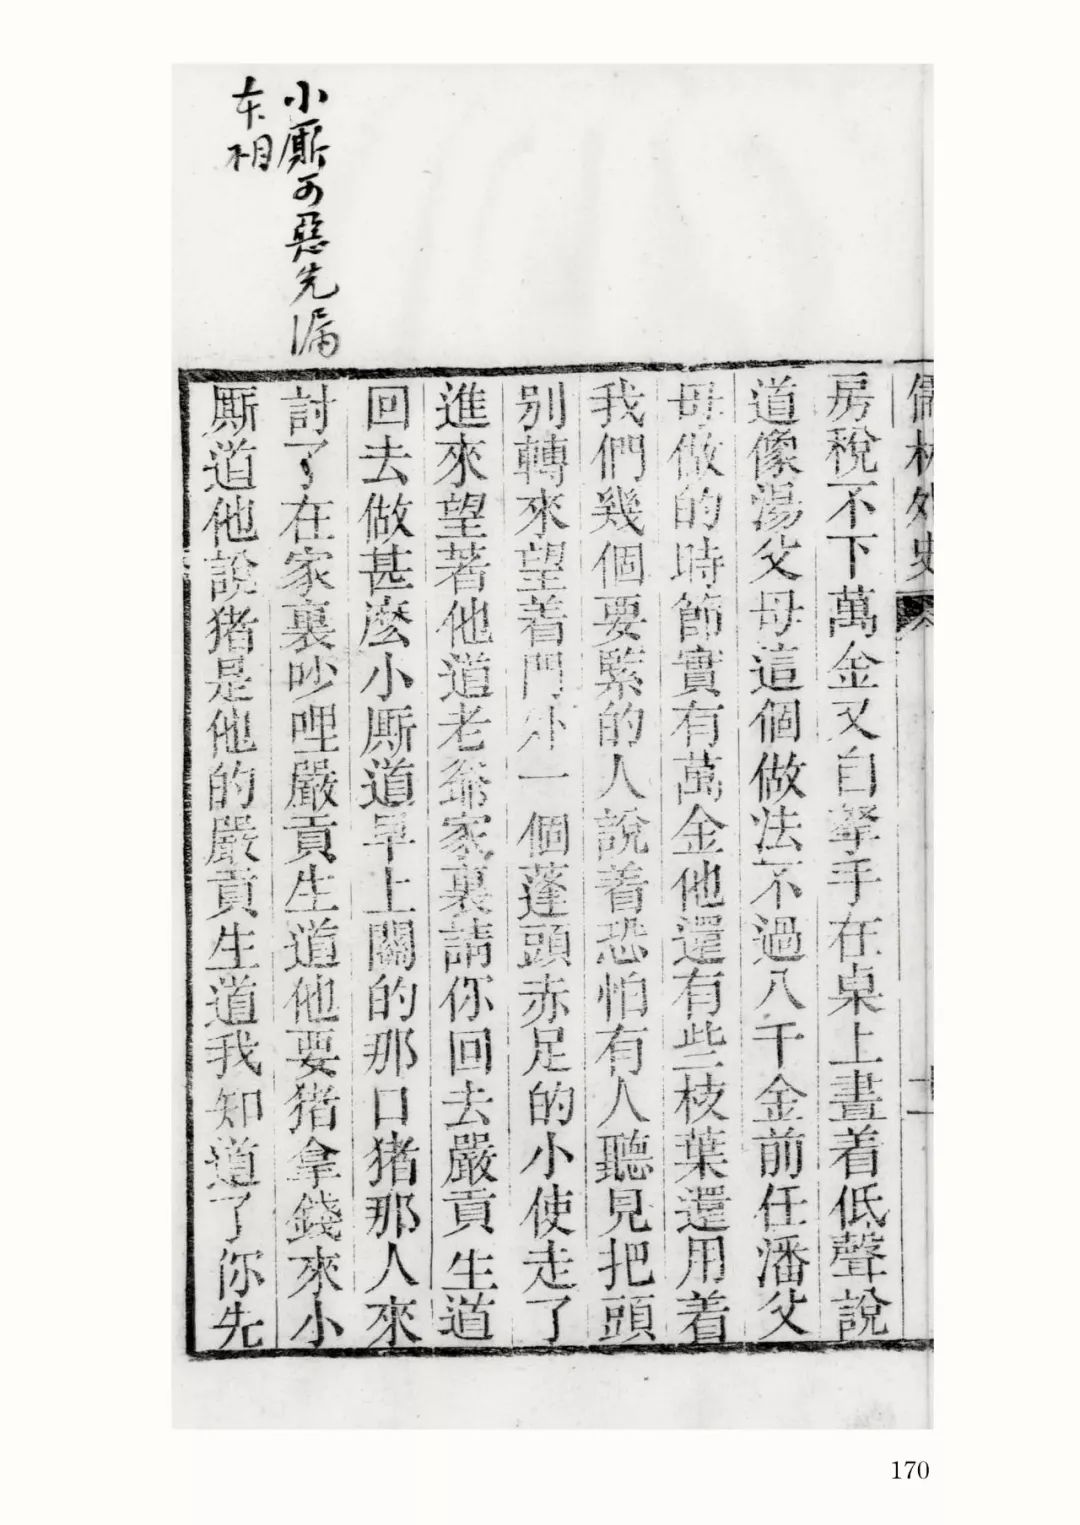 小厮可惡先漏
本相
儒林外史
房稅不下萬金又自拏手在桌上畫着低聲說
道像湯父母這個做法不過八千金前任潘父
母做的時節實有萬金他還有些枝葉還用着
我們幾個要緊的人說着恐怕有人聽見把頭
别轉來望着門外一個蓬頭赤足的小使走了
進來望著他道老爺家裏請你回去嚴貢生道
回去做甚麽小厮道早上關的那口猪那人來
討了在家裏吵哩嚴貢生道他要猪拿錢來小
厮道他說猪是他的嚴貢生道我知道了你先
170